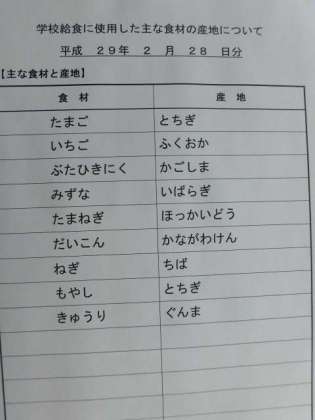 学校給食に使用した主な食材の産地について
平成 29年 2 月 28 日分
【主な食材と産地】
食 材 産 地
たまご とちぎ
いちご ふくおか
ぶたひきにく かごしま
みずな いばらぎ
たまねぎ ほっかいどう
だいこん かながわけん
ねぎ ちば
もやし とちぎ
きゅうり ぐんま